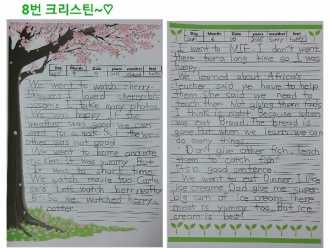 8번 크리스틴~♡
Day Month Date years weather feel
We went to watch cherry
blossoms. I loved cherry
blossoms. I take many photos.
We was happy. If the
weather was good we can
went for a walk. But, the wea
ther was not good.
We went to home and ate
chicken. It was yummy. But
it was to short time.
We watch movie too. Carla
said Let's watch herrypotter
So we watched herry
potter.
Day Month Date years weather feel
I went to MIE. I don't went
there for a long time so I was
happy.
We learned about Africa's
teacher said we have to help
them. She said we need to
teach them Not giving them foods
I think it's right. Because when
we eat Bread, The bread is
gone But when we learn we can
so many things.
Don't give other fish Teach
them to catch fish.
It's a good sentence.
We went to eat Dinner. I like
ice creame. Dad give me super
big corn of ice creame. There
meat is yummy too. But Ice
creame is best!